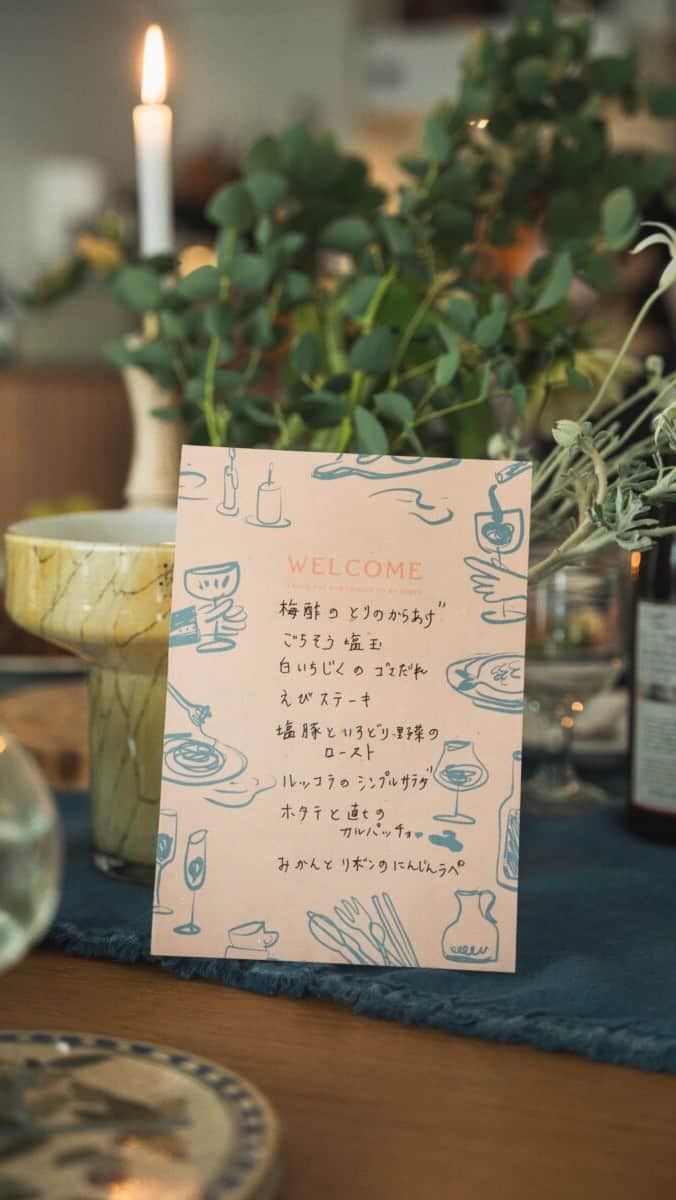 WELCOME
梅酢のとりのからあげ
ごちそう塩玉
白いちじくのゴマだれ
えびステーキ
塩豚といろどり野菜の
ロースト
ルッコラのシンプルサラダ
ホタテと直七の
カルパッチョ
みかんとリボンのにんじんラペ